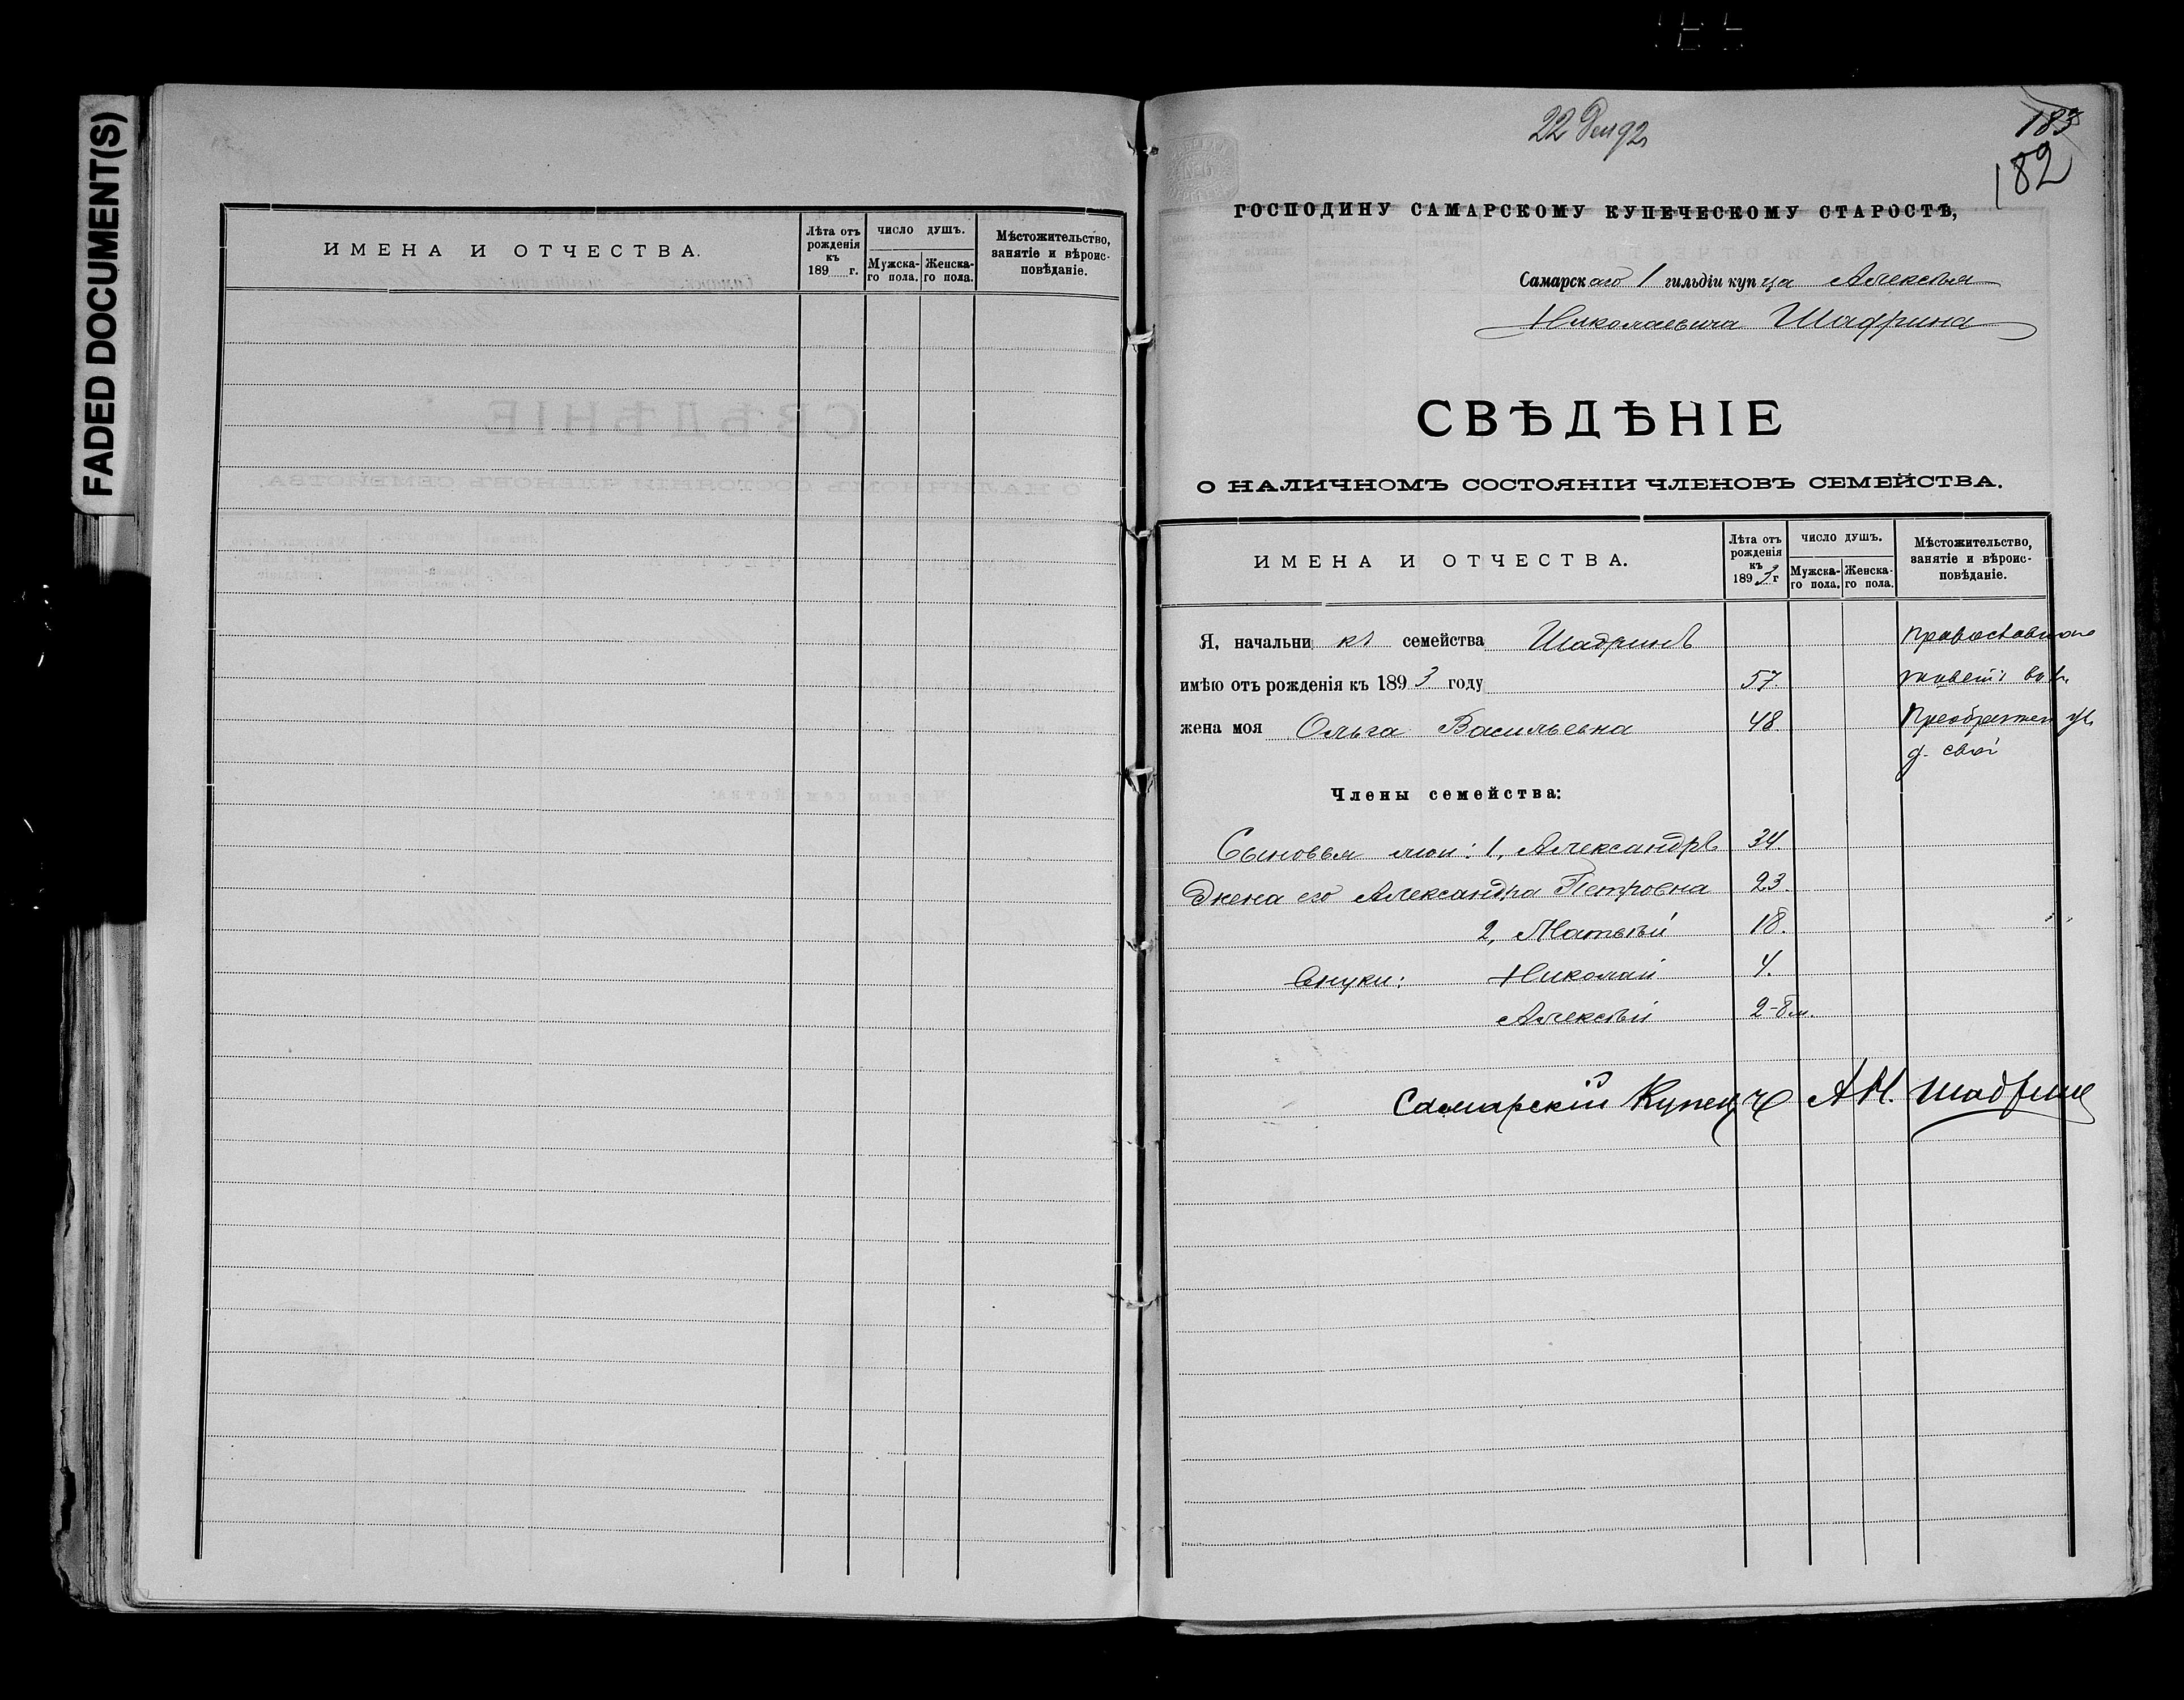 FADED DOCUMENT(S)
ИМЕНА И ОТЧЕСТВА.
Лѣта отъ рожденія къ 189 г.
ЧИСЛО ДУШЪ.
Мужска-го пола.
Женска-го пола.
Мѣстожительство, занятіе и вѣроис-повѣданіе.
22 Дек 92
183
182
ГОСПОДИНУ САМАРСКОМУ КУПЕЧЕСКОМУ СТАРОСТѢ,
Самарскаго 1 гильдіи купца Алексѣя
Николаевича Шадрина
СВѢДѢНІЕ
О НАЛИЧНОМЪ СОСТОЯНІИ ЧЛЕНОВЪ СЕМЕЙСТВА.
ИМЕНА И ОТЧЕСТВА.
Лѣта отъ рожденія къ 1893 г
ЧИСЛО ДУШЪ.
Мужска-го пола.
Женска-го пола.
Мѣстожительство, занятіе и вѣроис-повѣданіе.
Я, начальникъ семейства Шадринъ
имѣю отъ рожденія къ 1893 году 57.
жена моя Ольга Васильевна 48 Преображен ул.
д. свой
Члены семейства:
Сыновья мои: 1, Александръ 34.
Жена его Александра Петровна 23.
2, Матвѣй 18.
Внуки: Николай 4.
Алексѣй 2-8 м.
Самарскій Купецъ А Н. Шадринъ